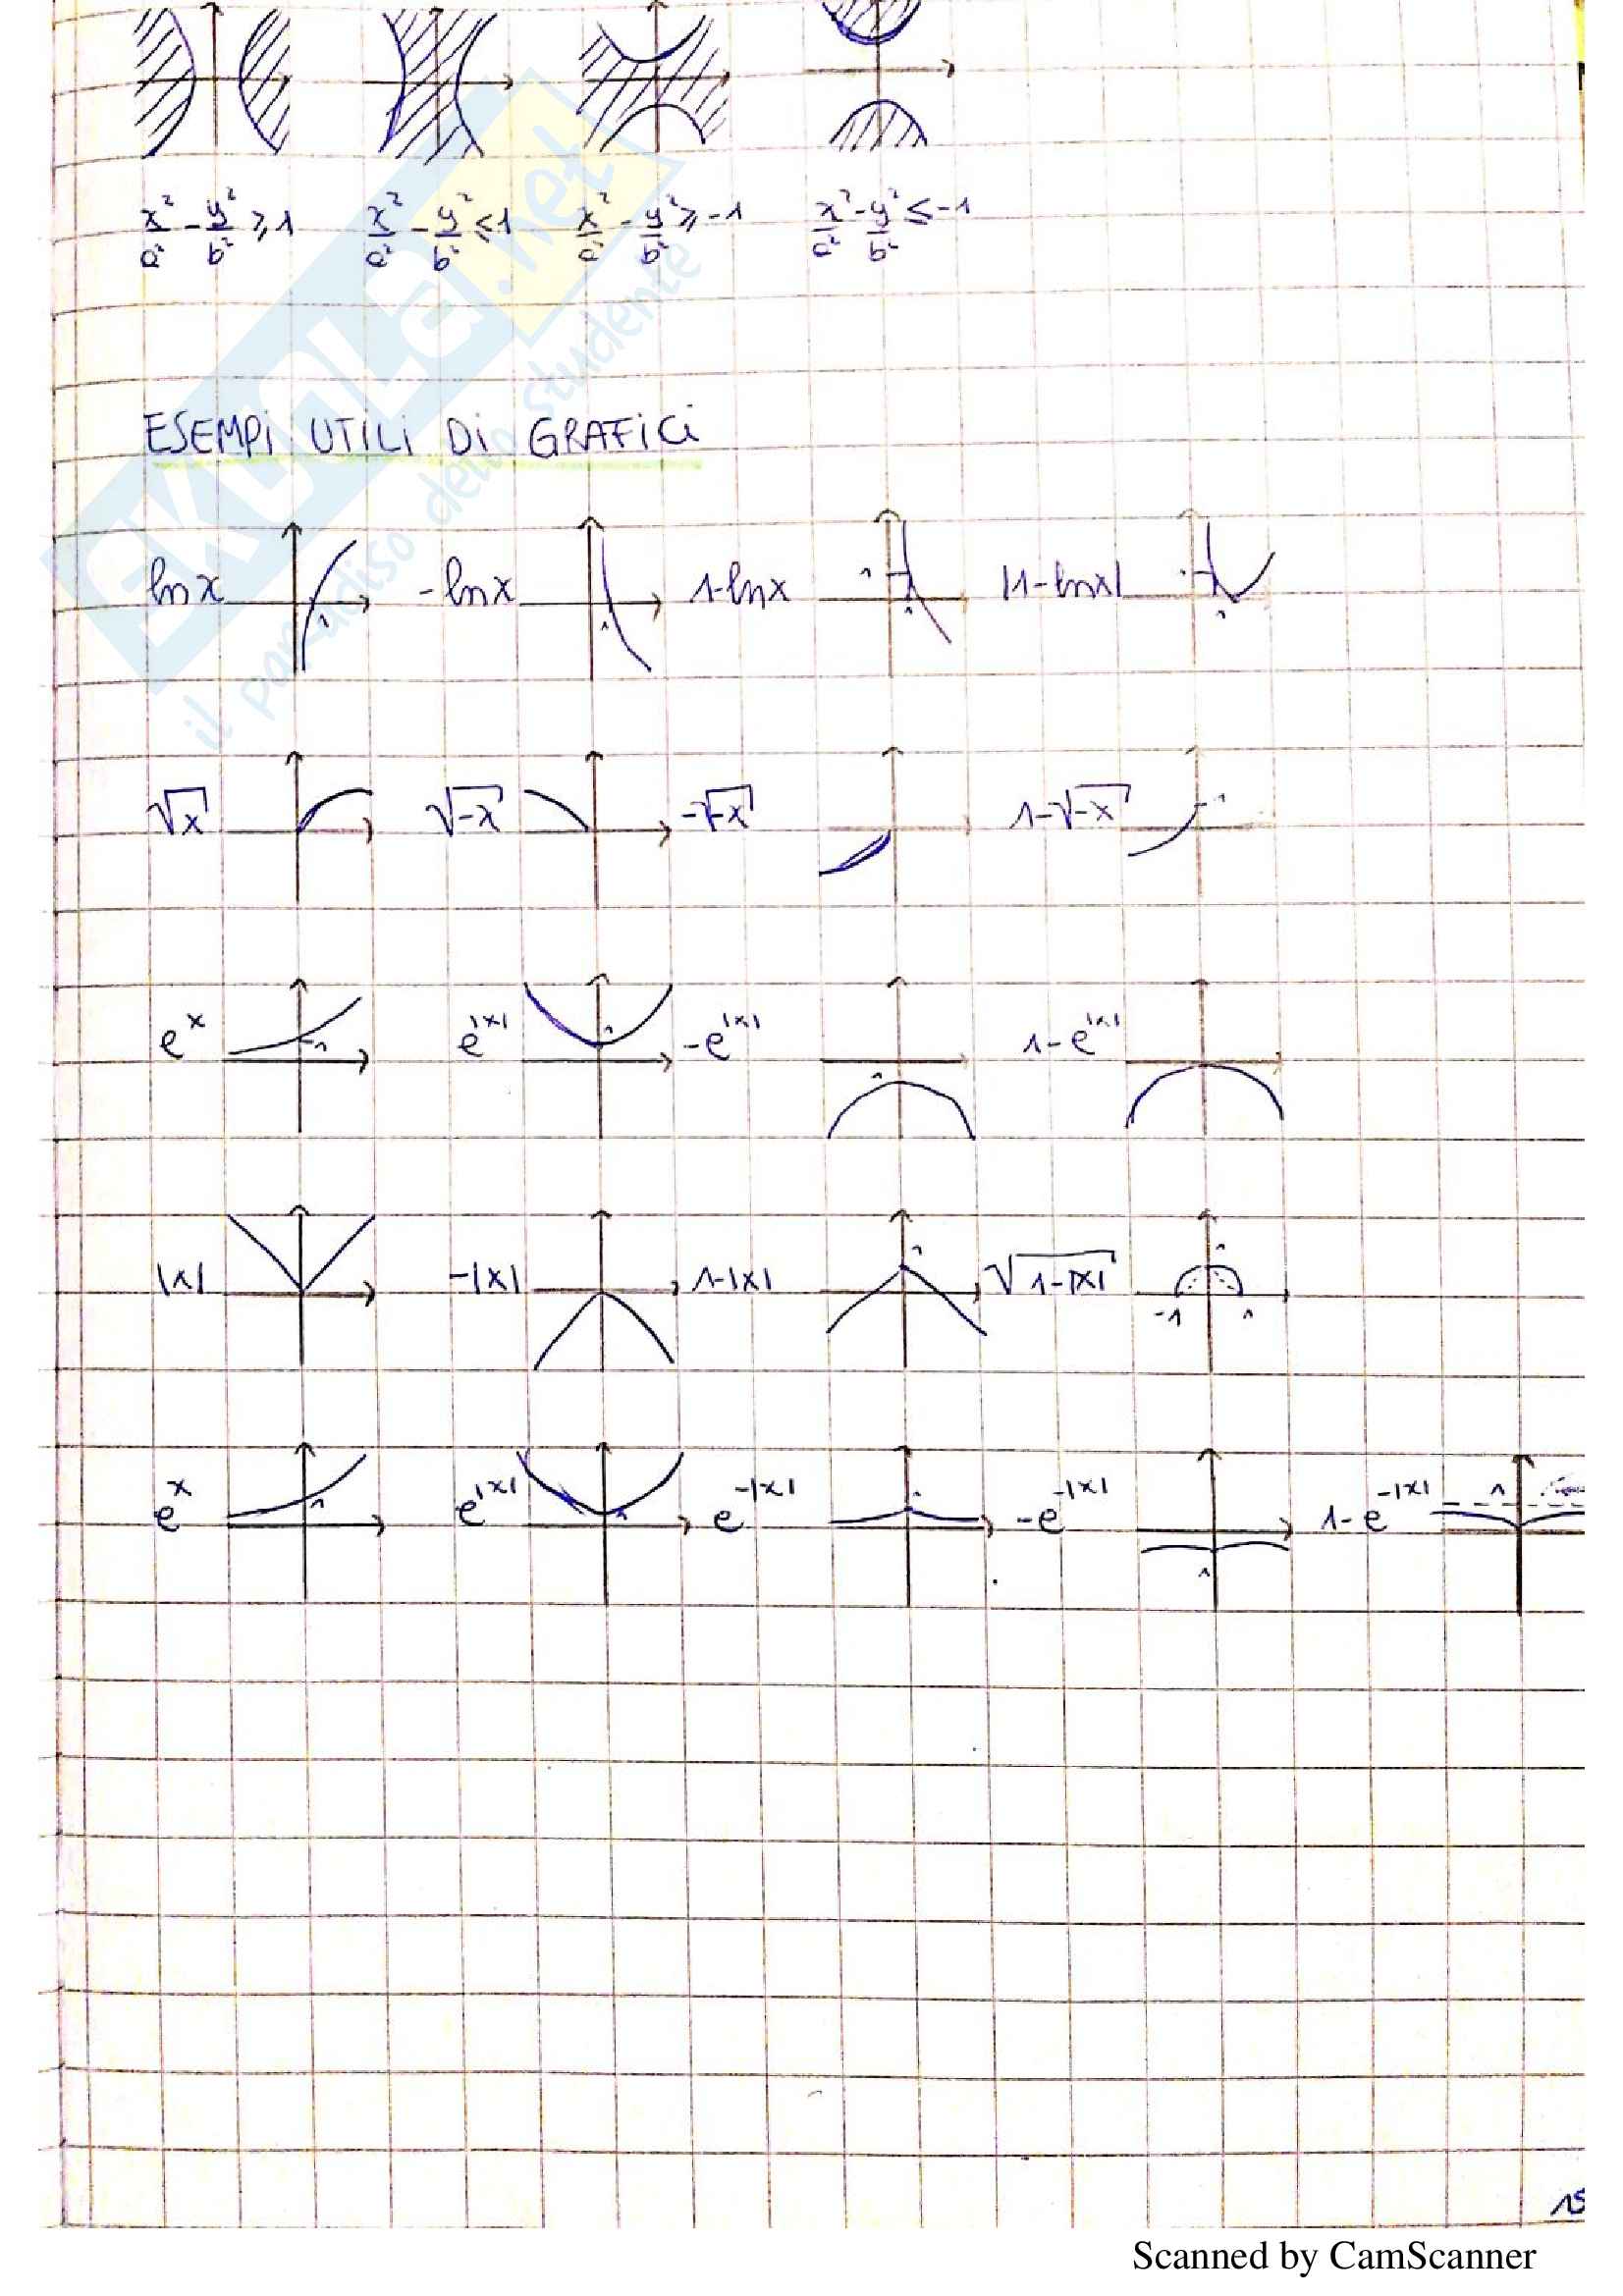 x²/a² - y²/b² ≥ 1   x²/a² - y²/b² ≤ 1   x²/a² - y²/b² ≥ -1   x²/a² - y²/b² ≤ -1
SKUOLA.net
il paradiso dello studente
ESEMPi UTiLi Di GRAFiCi
ln x   1   -ln x   1   1-ln x   1   1   |1-ln x|   1
√x   √-x   -√-x   1-√-x   1
e^x   1   e^|x|   1   -e^|x|   1   1-e^|x|
|x|   -|x|   1-|x|   1   √1-|x|   1   -1   1
e^x   1   e^|x|   1   e^-|x|   -e^-|x|   1   1-e^-|x|   1
15
Scanned by CamScanner